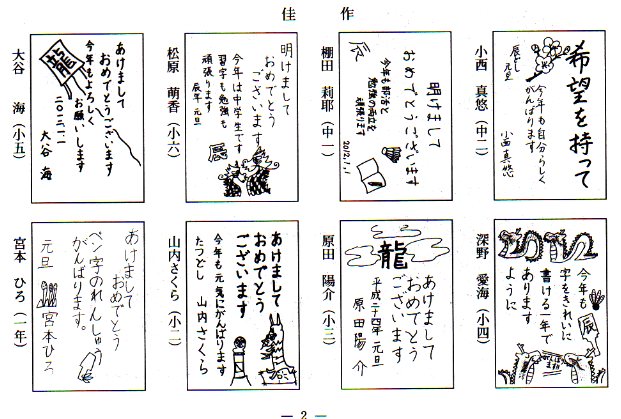 佳作
小西 真悠（中二）
希望を持って
今年も自分らしく
がんばります
辰どし 元旦
小西真悠
棚田 莉耶（中一）
明けまして
おめでとうございます
今年も部活と
勉強の両立を
頑張ります
2012.1.1
辰
松原 萌香（小六）
明けまして
おめでとう
ございます
今年は中学生です
習字も勉強も
頑張ります
辰年 元旦
辰
大谷 海（小五）
龍
あけまして
おめでとうございます
今年もよろしく
お願いします
二〇一二.一.一
大谷 海
深野 愛海（小四）
今年も
字をきれいに
書ける一年で
あります
ように
辰
原田 陽介（小三）
龍
あけまして
おめでとう
ございます
平成二十四年 元旦
原田陽介
山内さくら（小二）
あけまして
おめでとう
ございます
今年も元気にがんばります
たつどし 山内さくら
宮本 ひろ（一年）
あけまして
おめでとう
ペン字のれんしゅう
がんばります。
元旦 宮本ひろ
— 2 —